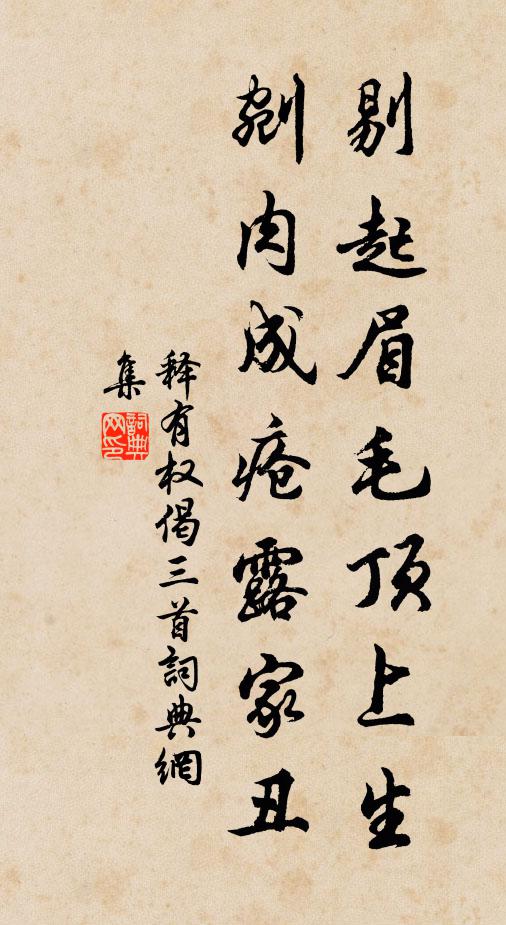 剔起眉毛顶上生
剜肉成疮露家丑
释有权偈三首詞典網
集
詞典网印